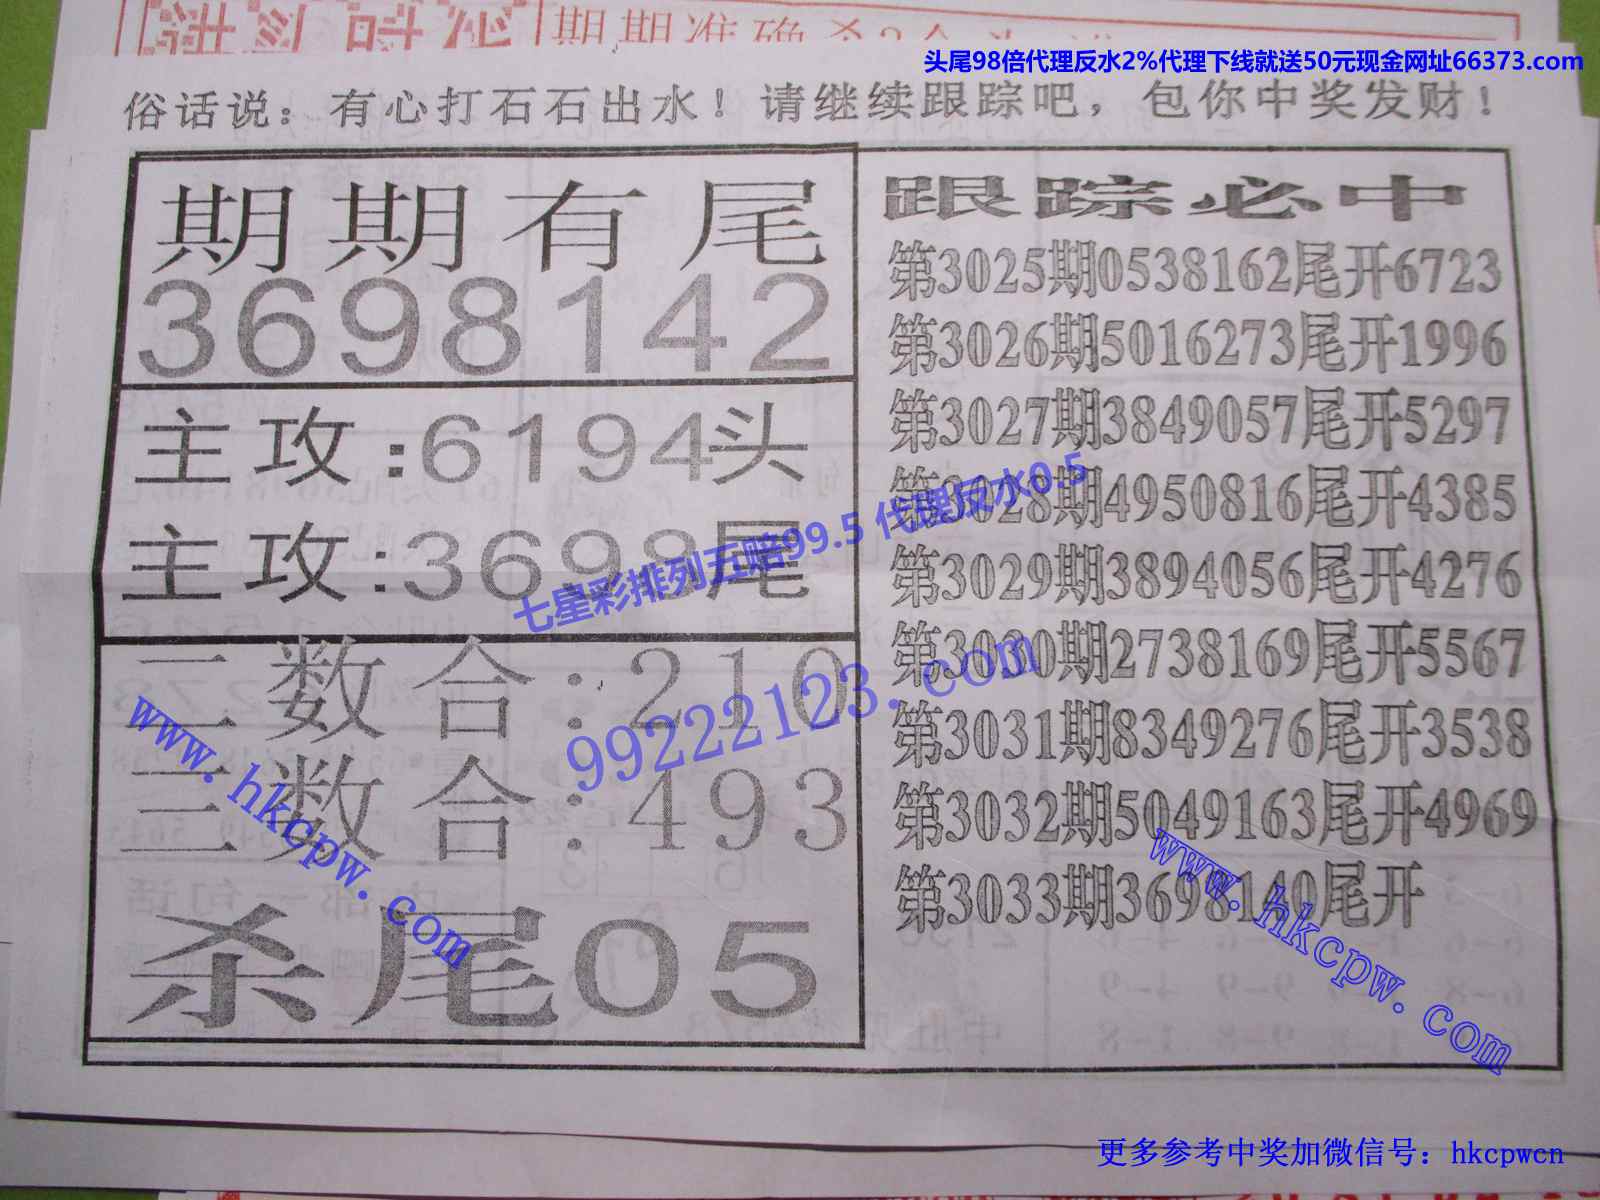 期期准确杀2个头
头尾98倍代理反水2%代理下线就送50元现金网址66373.com
俗话说：有心打石石出水！请继续跟踪吧，包你中奖发财！
期期有尾
3698142
主攻:6194头
主攻:3698尾
二数合:210
三数合:493
杀尾05
跟踪必中
第3025期0538162尾开6723
第3026期5016273尾开1996
第3027期3849057尾开5297
第3028期4950816尾开4385
第3029期3894056尾开4276
第3030期2738169尾开5567
第3031期8349276尾开3538
第3032期5049163尾开4969
第3033期3698140尾开
七星彩排列五赔99.5 代理反水0.5
99222123.com
www.hkcpw.com
www.hkcpw.com
更多参考中奖加微信号：hkcpwcn